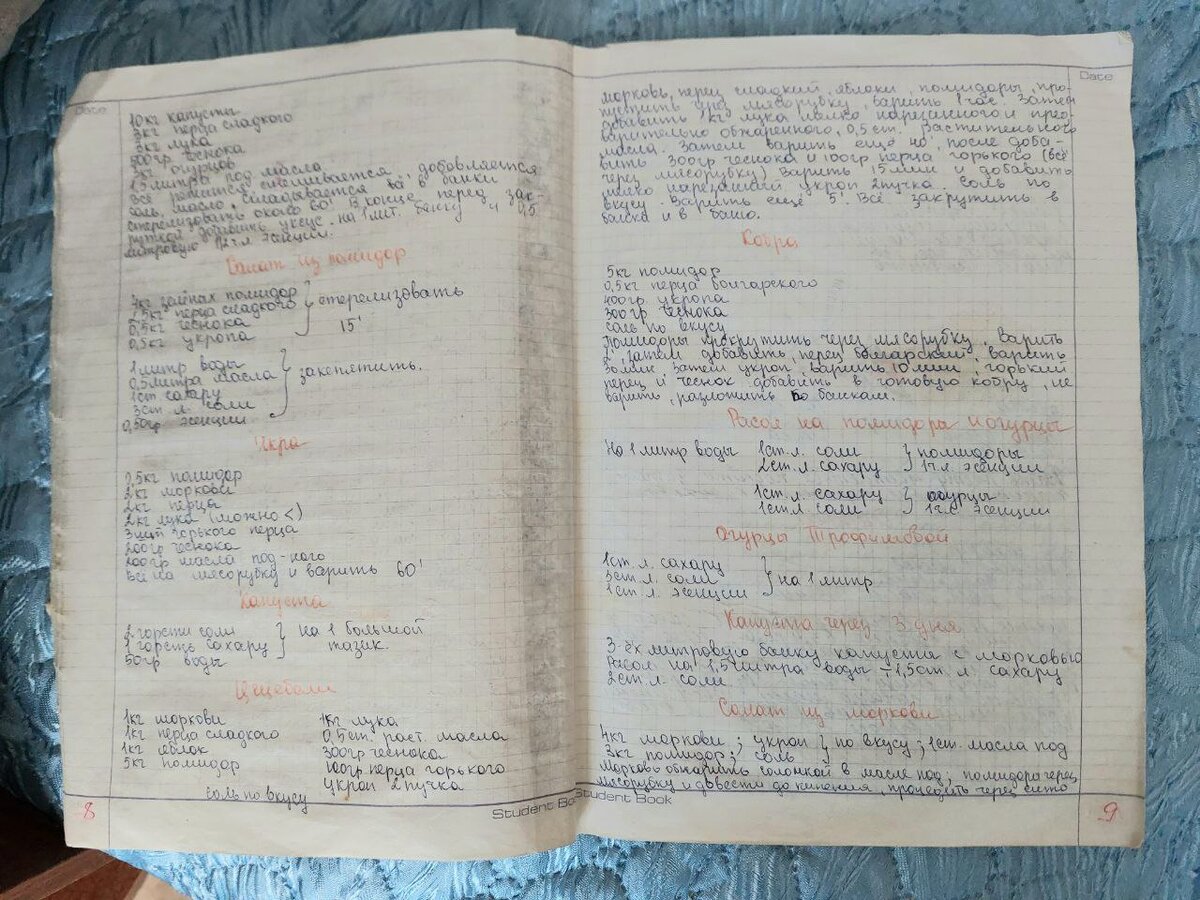 Date
10кг капусты
3кг перца сладкого
3кг лука
500гр чеснока
огурцов
1,5 литра под масла
Всё режится, смешивается, добавляется
соль, масло, складывается всё в банки
стерелизовать около 60' В конце, перед зак-
руткой добавить уксус. на 1 лит. банку и 0,5
литровую 1/2 ч.л. эсенции.
Салат из помидор
4кг зелёных помидор
1,5кг перца сладкого
0,5кг чеснока
0,5кг укропа
стерелизовать
15'
1 литр воды
0,5 литра масла
1ст сахару
3ст. л. соли
0,50гр эсенции
закепятить.
Икра
2,5кг помидор
2кг моркови
2кг перца
2кг лука (можно <)
3шт горького перца
200гр чеснока
200гр масла под-ного
Всё на мясорубку и варить 60'
Капуста
2 горсти соли
1 горсть сахару
50гр воды
на 1 большой
тазик.
Цицебели
1кг моркови
1кг перца сладкого
1кг яблок
5кг помидор
1кг лука
0,5ст. раст. масла
300гр чеснока
100гр перца горького
укроп 2 пучка
соль по вкусу
8
Student Book
Date
морковь, перец сладкий, яблоки, помидоры, про-
пустить через мясорубку, варить 1 час. Затем
добавить 1кг лука мелко нарезанного и пред-
варительно обжаренного, 0,5 ст. растительного
масла. Затем варить ещё 40', после доба-
вить 300гр чеснока и 100гр перца горького (всё
через мясорубку) варить 15 мин и добавить
мелко нарезанный укроп 2 пучка. Соль по
вкусу. Варить ещё 5'. Всё закрутить в
банки и в баню.
Кобра
5кг помидор
0,5кг перца болгарского
400гр укропа
300гр чеснока
соль по вкусу
Помидоры прокрутить через мясорубку. Варить
затем добавить перец болгарский, варить
30 мин. Затем укроп, варить 10 мин, горький
перец и чеснок добавить в готовую кобру, не
варить, разложить по банкам.
Расол на помидоры и огурцы
На 1 литр воды
1ст. л. соли
2ст. л. сахару
помидоры
1ч.л. эсенции
1ст. л. сахару
1ст. л. соли
огурцы
1ч.л. эсенции
Огурцы Трофимовой
1ст. л. сахару
3ст. л. соли
1ст. л. эсенции
на 1 литр
Капуста через 3 дня
3-ёх митровую банку капуста с морковью
Расол на 1,5 литра воды 1,5ст. л. сахару
2ст. л. соли
Салат из моркови
4кг моркови ; укроп
3кг помидор ; соль
по вкусу ; 1ст. масла под
Морковь обжарить соломкой в масле под, помидоры через
мясорубку и довести до кипения, процедить через сито
9
Student Book